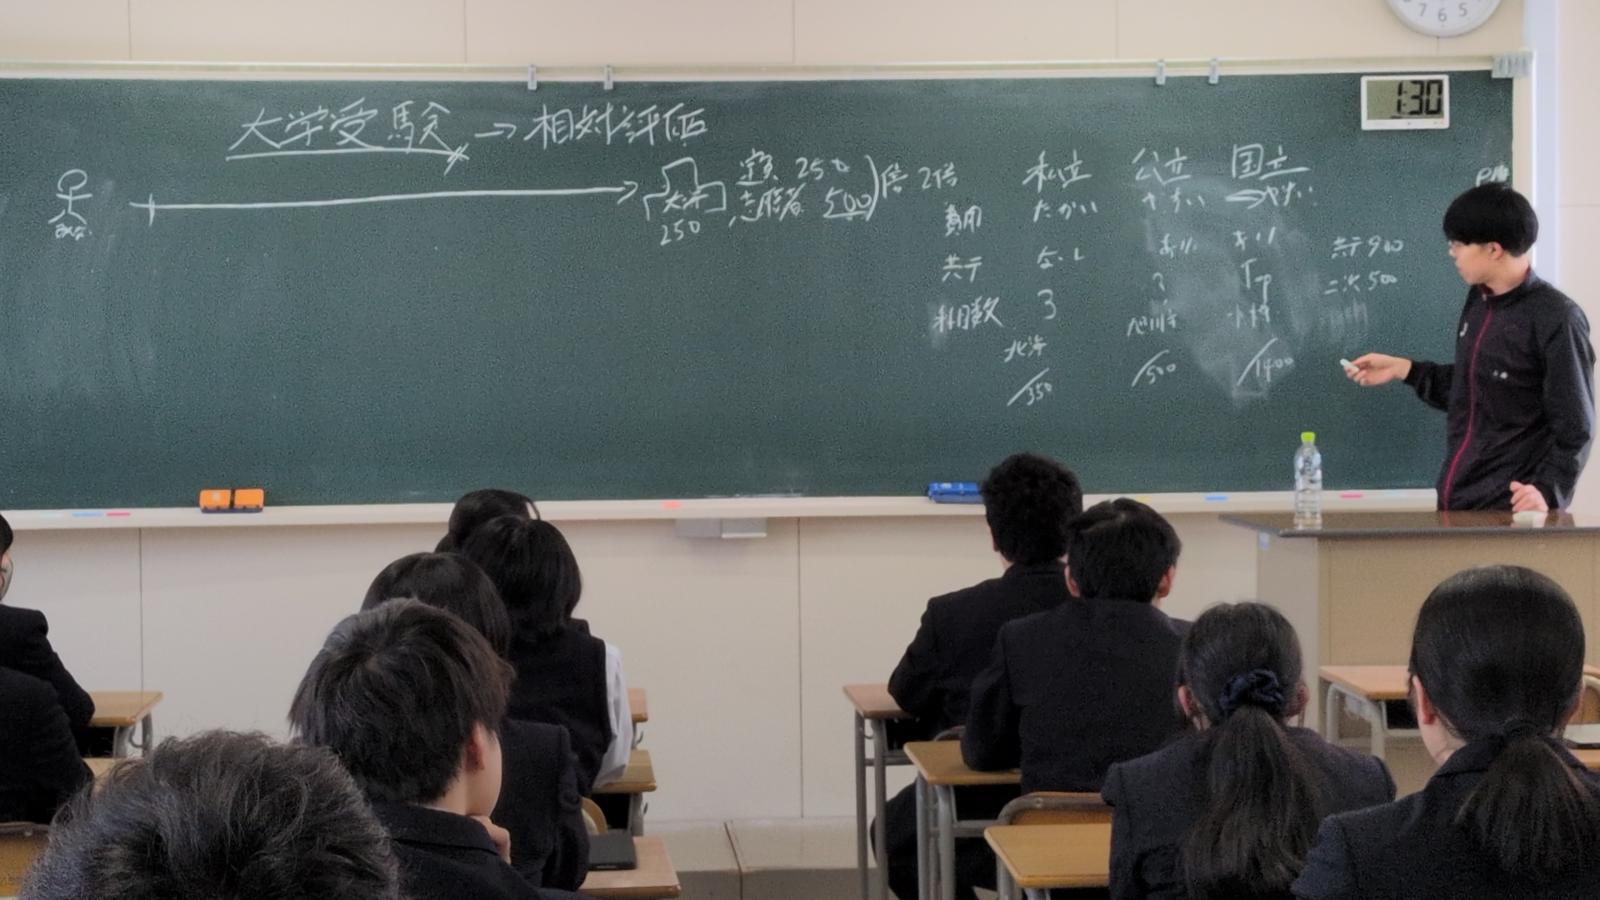 大学受験 → 相対評価
大学
250
定員 250
志願者 500
倍 2倍
私立 公立 国立
費用 たかい やすい やすい
共テ なし あり あり 共テ900
二次500
科目数 3 ?
北海 旭川市 小樽
/350 /500 /1400
1:30
7 6 5